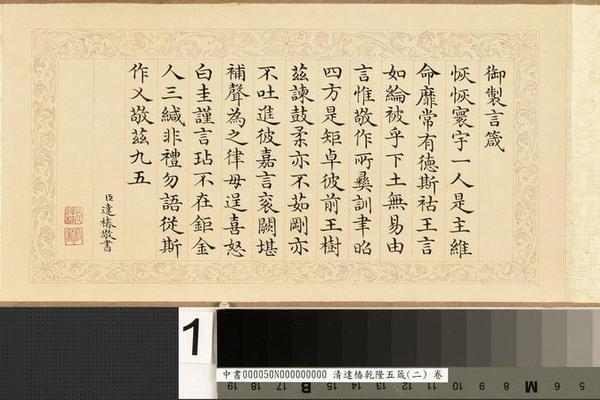 御製言箴
恢恢寰宇一人是主維
命靡常有德斯祜王言
如綸被乎下土無易由
言惟敬作所彞訓聿昭
四方是矩卓彼前王樹
茲諫鼓柔亦不茹剛亦
不吐進彼嘉言袞闕堪
補聲為之律毋逞喜怒
白圭謹言玷不在鉅金
人三緘非禮勿語從斯
作乂敬茲九五
臣達椿敬書
1
中書000050N000000000 清達椿乾隆五箴(二) 卷